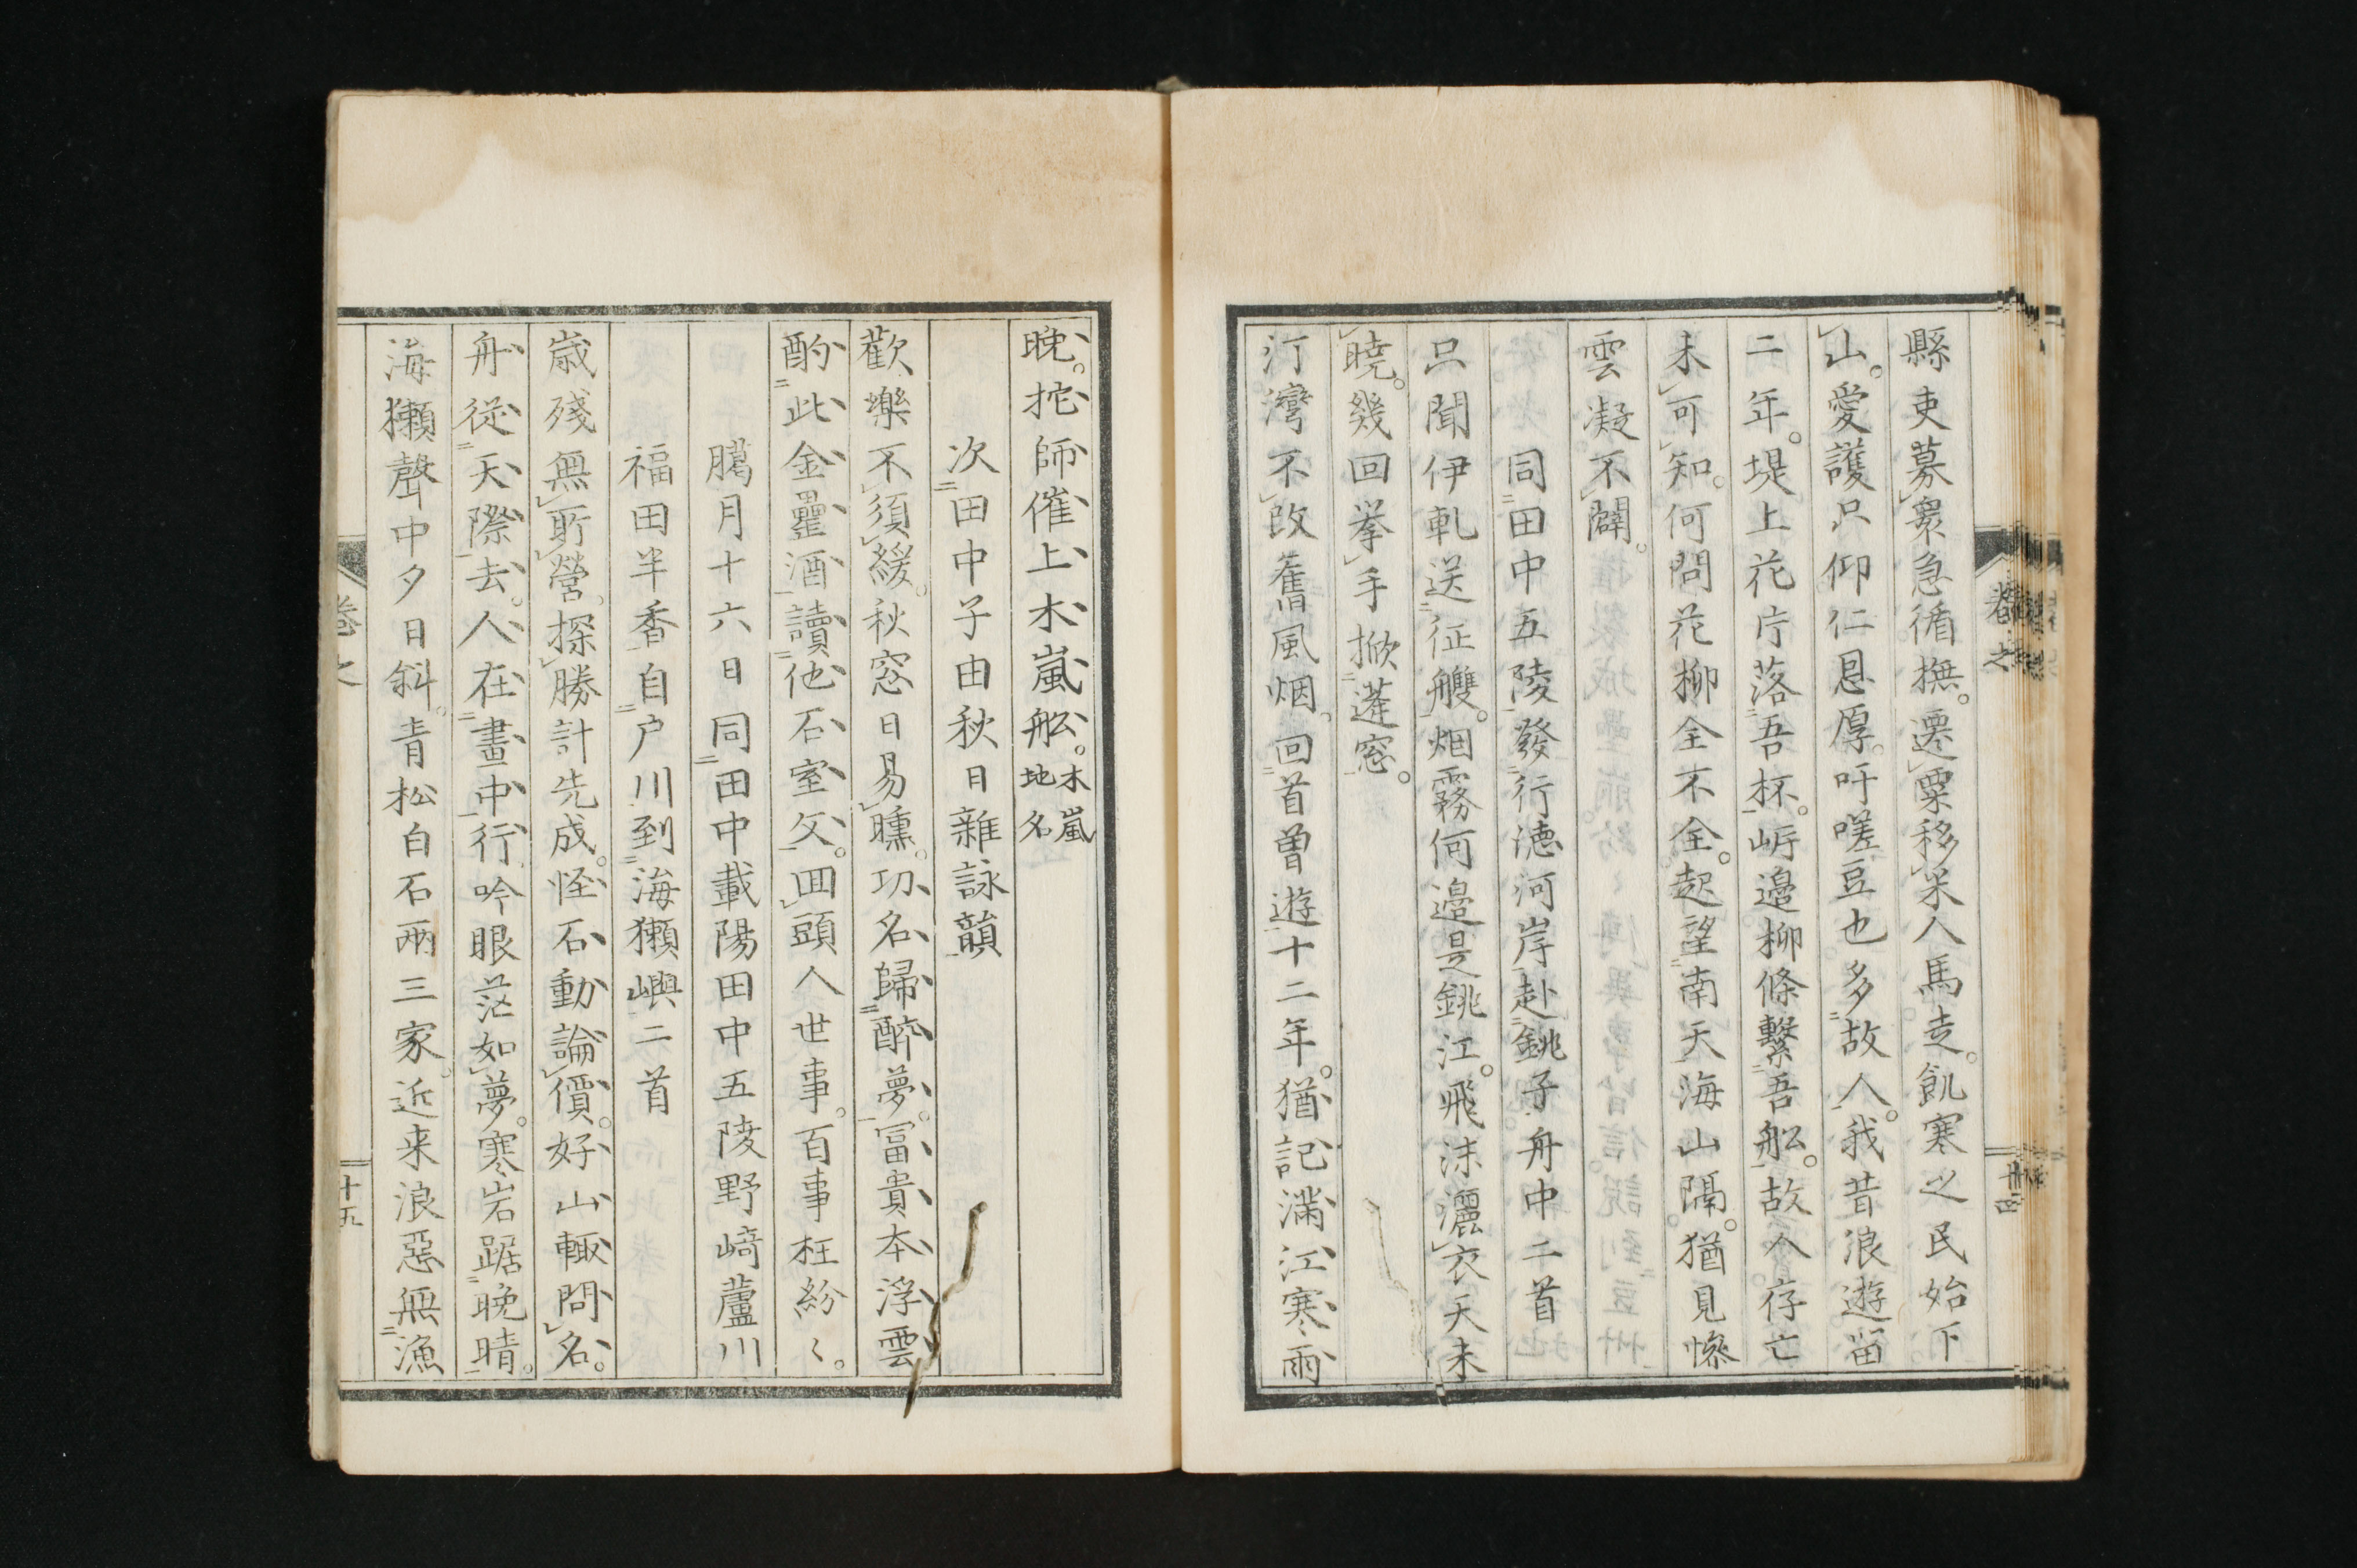 縣吏募衆急循撫。遷粟移米人馬走。飢寒之民始下
山。愛護只仰仁恩厚。吁嗟豆也多故人。我昔浪遊留
二年。堤上花片落吾杯。岸邉柳條繋吾舩。故人存亡
未可知。何問花柳全不全。起望南天海山隔。猶見慘
雲凝不闢。
同田中五陵發行德河岸赴銚子舟中二首
只聞伊軋送征艭。烟霧何邉是銚江。飛沫灑衣天未
曉。幾回挙手掀篷窓。
汀灣不改舊風烟。回首曽遊十二年。猶記滿江寒雨
晩。挖師催上木嵐舩。木嵐地名
次田中子由秋日雜詠韻
歡樂不須緩。秋窓日易曛。功名歸醉夢。冨貴本浮雲
酌此金罍酒。讀他石室文。回頭人世事。百事枉紛〻。
臈月十六日同田中載陽田中五陵野﨑蘆川
福田半香自戸川到海獺嶼二首
歳殘無所營。探勝計先成。恠石動論價。好山輙問名。
舟從天際去。人在畫中行。吟眼茫如夢。寒岩踞晩晴。
海獺聲中夕日斜。青松白石兩三家。近来浪惡無漁
卷之
十五
卷之
十四